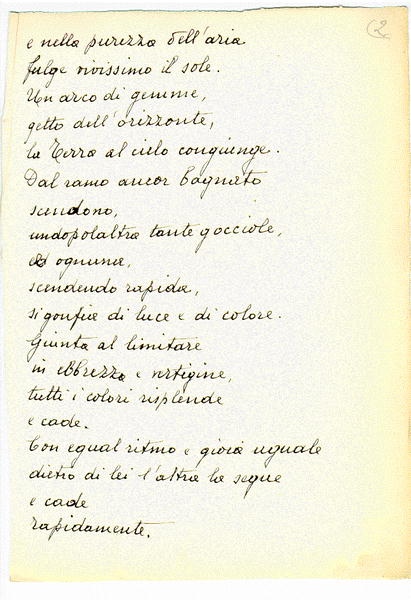 (2
e nella purezza dell'aria
fulge vivissimo il sole.
Un arco di gemme,
getto dell'orizzonte,
la Terra al cielo congiunge.
Dal ramo ancor bagnato
scendono,
undopolaltra tante gocciole,
ed ognuna,
scendendo rapida,
si gonfia di luce e di colore.
Giunta al limitare
in ebbrezza e vertigine,
tutti i colori risplende
e cade.
Con egual ritmo e gioia uguale
dietro di lei l'altra la segue
e cade
rapidamente.